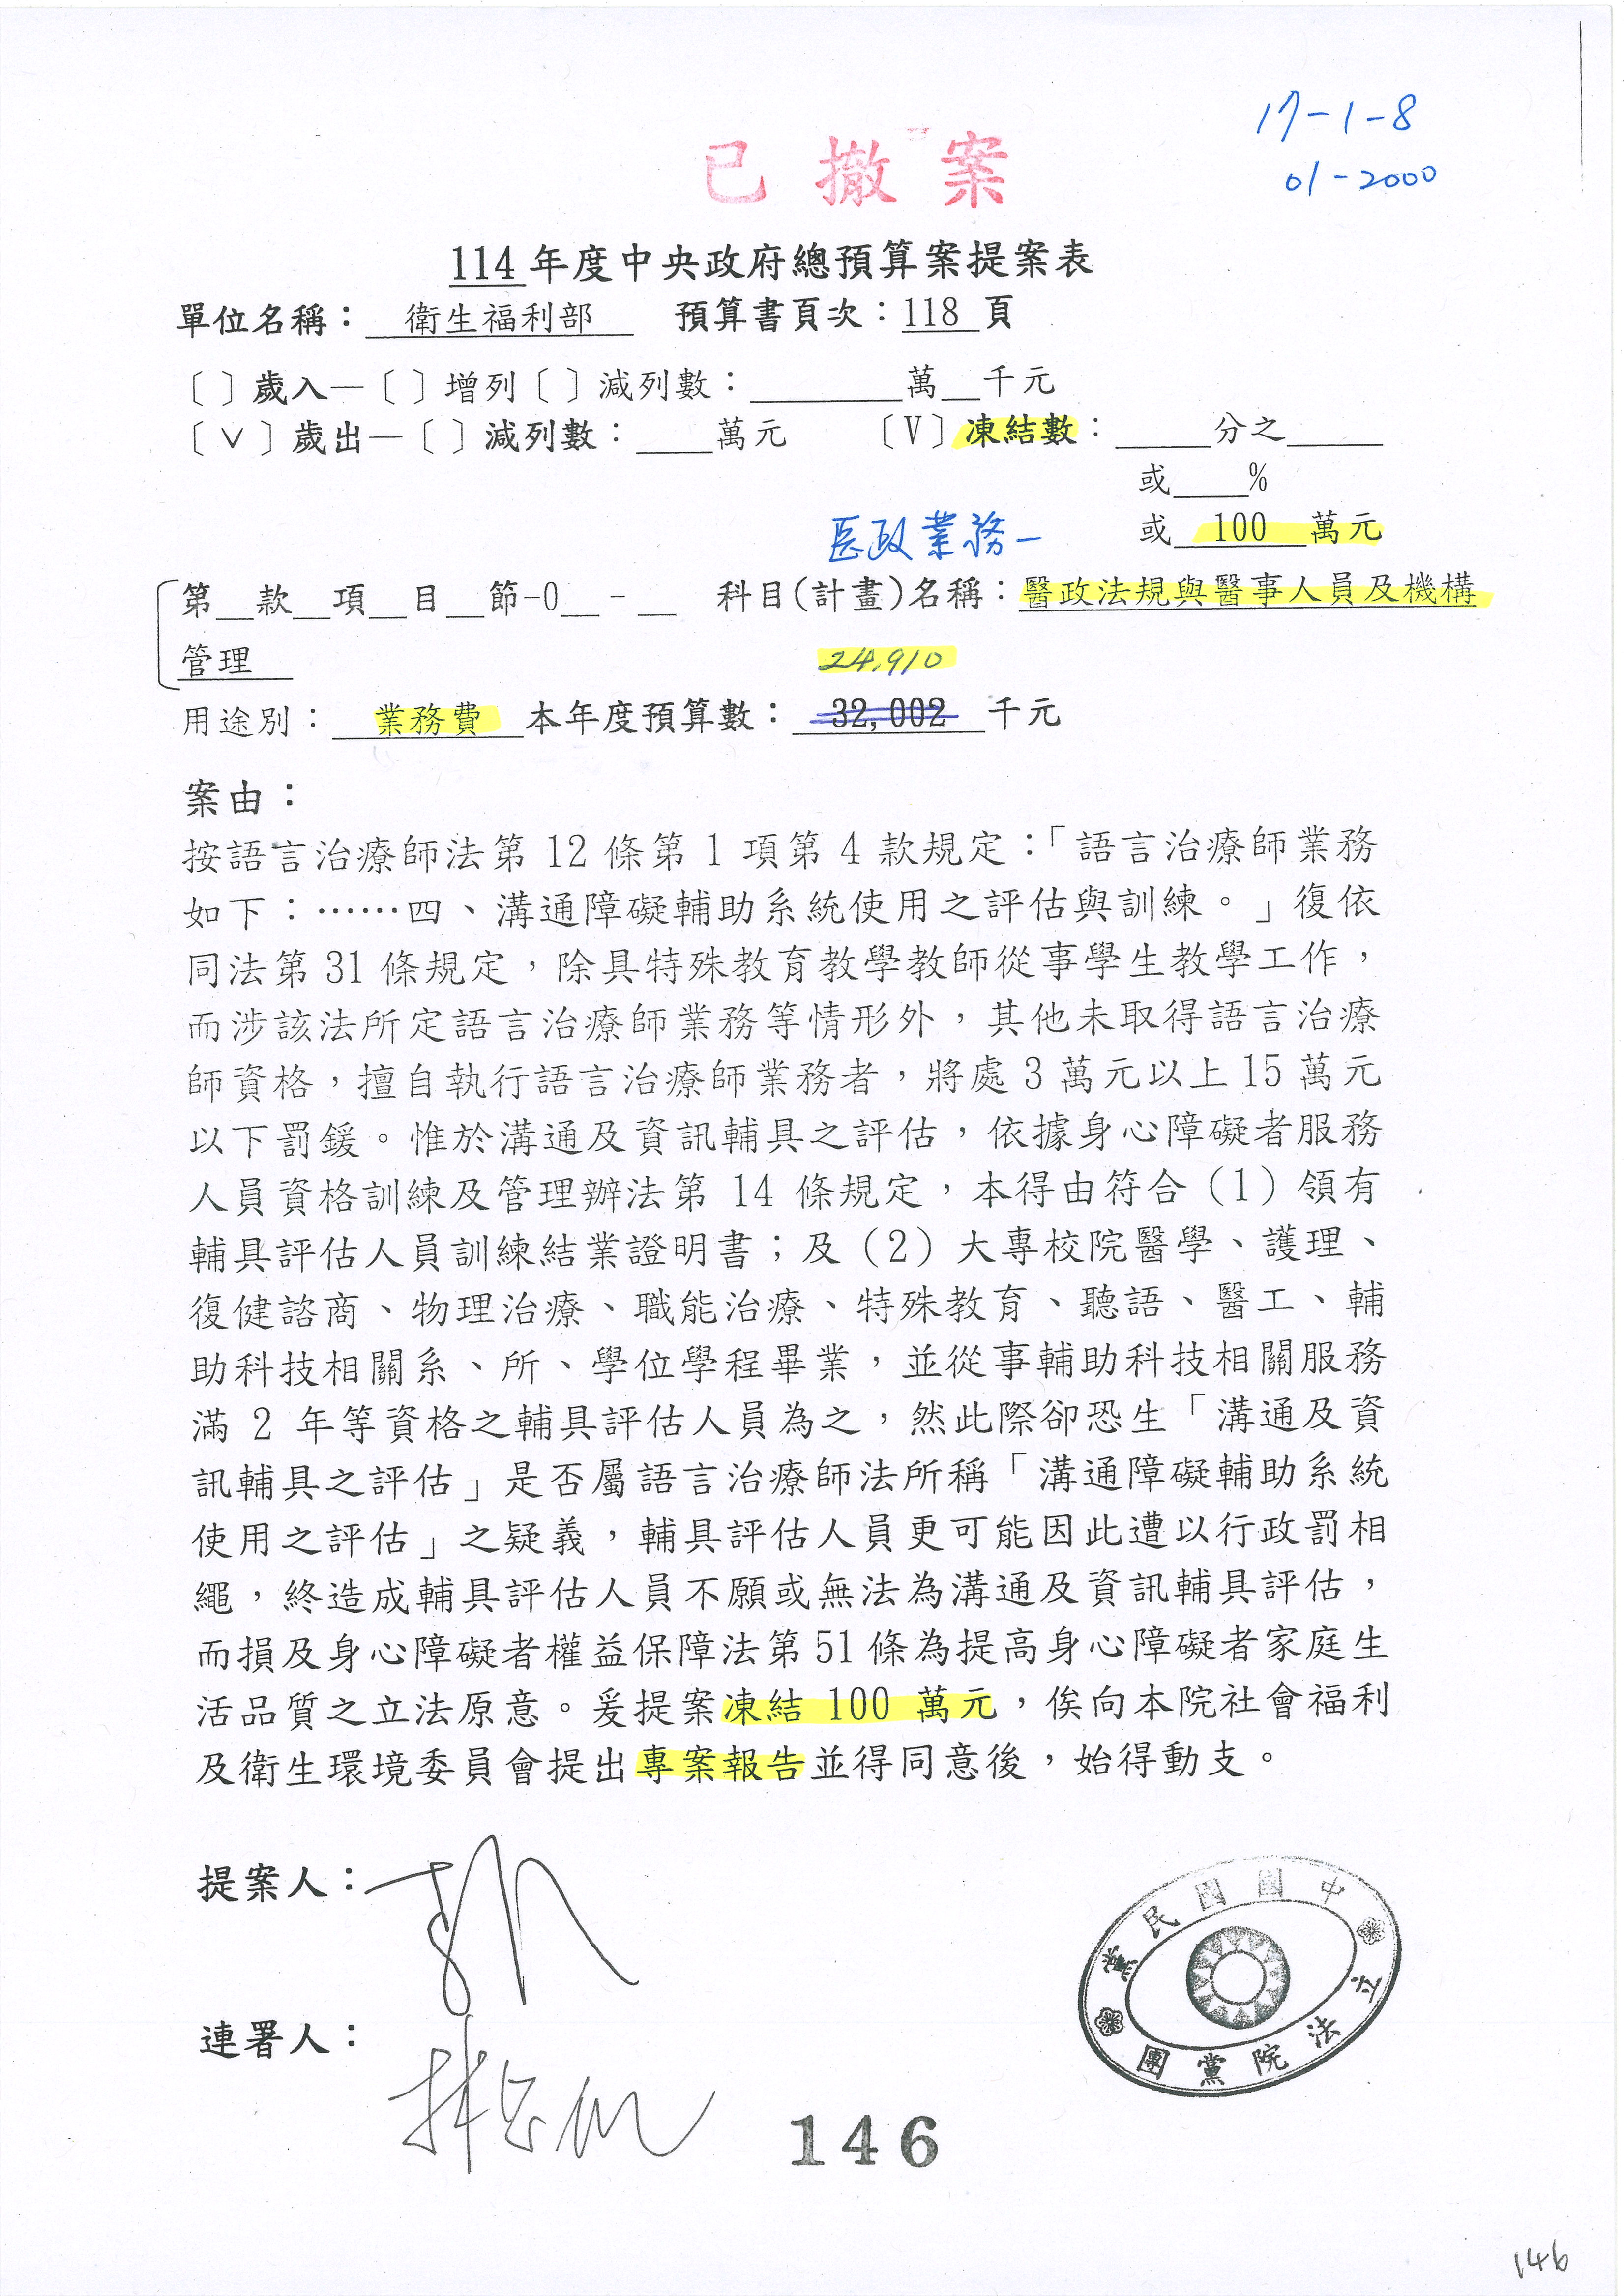 17-1-8
01-2000
已撤案
114年度中央政府總預算案提案表
單位名稱：衛生福利部 預算書頁次：118頁
〔 〕歲入—〔 〕增列〔 〕減列數：____萬__千元
〔V〕歲出—〔 〕減列數：____萬元 〔V〕凍結數：____分之____
或____%
或 100 萬元
醫政業務—
第__款__項__目__節-0__-__ 科目(計畫)名稱：醫政法規與醫事人員及機構
管理
24,910
用途別：業務費 本年度預算數：32,002 千元
案由：
按語言治療師法第12條第1項第4款規定：「語言治療師業務
如下：……四、溝通障礙輔助系統使用之評估與訓練。」復依
同法第31條規定，除具特殊教育教學教師從事學生教學工作，
而涉該法所定語言治療師業務等情形外，其他未取得語言治療
師資格，擅自執行語言治療師業務者，將處3萬元以上15萬元
以下罰鍰。惟於溝通及資訊輔具之評估，依據身心障礙者服務
人員資格訓練及管理辦法第14條規定，本得由符合(1)領有
輔具評估人員訓練結業證明書；及(2)大專校院醫學、護理、
復健諮商、物理治療、職能治療、特殊教育、聽語、醫工、輔
助科技相關系、所、學位學程畢業，並從事輔助科技相關服務
滿2年等資格之輔具評估人員為之，然此際卻恐生「溝通及資
訊輔具之評估」是否屬語言治療師法所稱「溝通障礙輔助系統
使用之評估」之疑義，輔具評估人員更可能因此遭以行政罰相
繩，終造成輔具評估人員不願或無法為溝通及資訊輔具評估，
而損及身心障礙者權益保障法第51條為提高身心障礙者家庭生
活品質之立法原意。爰提案凍結100萬元，俟向本院社會福利
及衛生環境委員會提出專案報告並得同意後，始得動支。
提案人：
中國國民黨
立法院黨團
連署人：
146
146